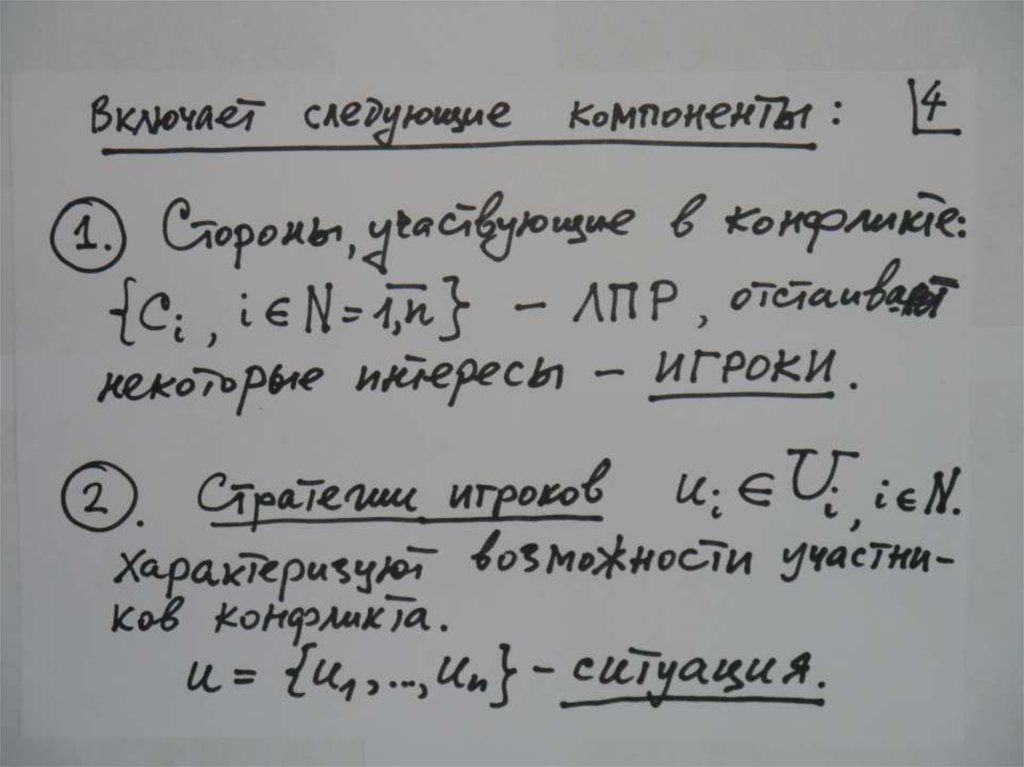 Включает следующие компоненты: 4
1. Стороны, участвующие в конфликте:
{Cᵢ, i ∈ N = 1,n̅} – ЛПР, отстаивают
некоторые интересы – ИГРОКИ.
2. Стратегии игроков uᵢ ∈ Uᵢ, i ∈ N.
Характеризуют возможности участни-
ков конфликта.
u = {u₁, ..., uₙ} – ситуация.